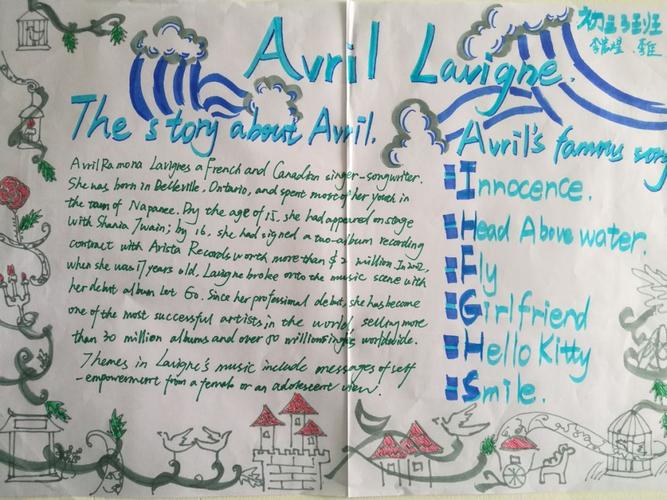 Avril Lavigne.
初三3班
The story about Avril.
Avril Ramona Lavigne is a French and Canadian singer-songwriter.
She was born in Belleville, Ontario, and spent most of her youth in
the town of Napanee. By the age of 15, she had appeared on stage
with Shania Twain; by 16, she had signed a two-album recording
contract with Arista Records worth more than $2 million. In 2002,
when she was 17 years old, Lavigne broke onto the music scene with
her debut album Let Go. Since her professional debut, she has become
one of the most successful artists in the world, selling more
than 30 million albums and over 50 million singles worldwide.
Themes in Lavigne's music include messages of self
-empowerment from a female or an adolescent view.
Avril's famous song
Innocence.
Head Above water.
Fly
Girlfriend
Hello Kitty
Smile.